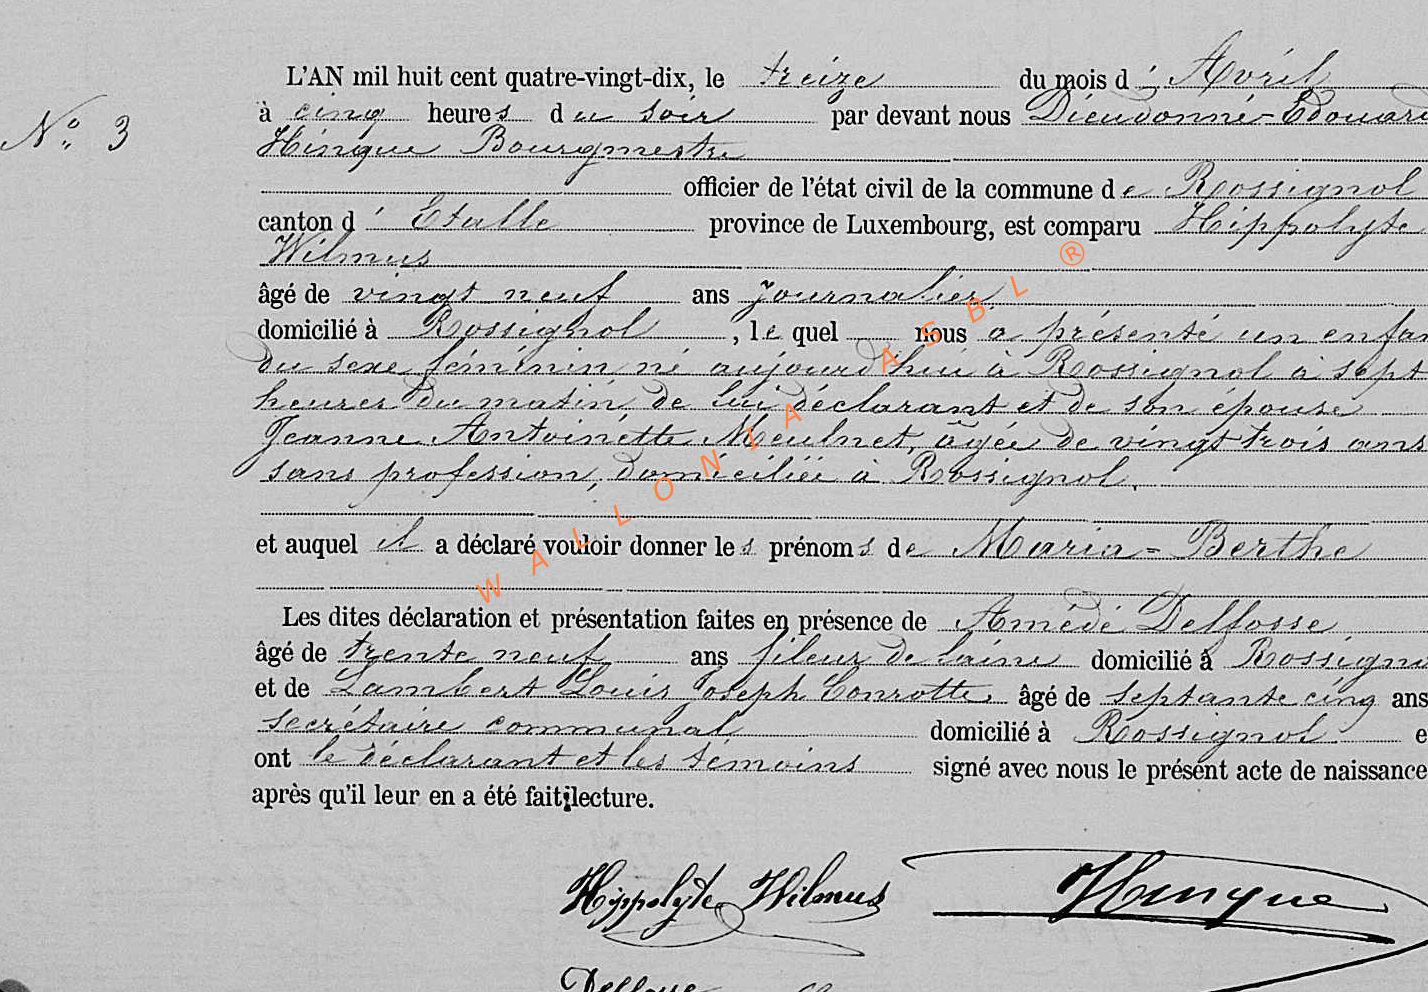 N° 3
L'AN mil huit cent quatre-vingt-dix, le treize du mois d' Avril
à cinq heures du soir par devant nous Dieudonné-Edouard
Hinque Bourgmestre
officier de l'état civil de la commune de Rossignol
canton d' Etalle province de Luxembourg, est comparu Hippolyte
Wilmus
âgé de vingt neuf ans journalier
domicilié à Rossignol, lequel nous a présenté un enfan
du sexe féminin né aujourd'hui à Rossignol à sept
heures du matin, de lui déclarant et de son épouse
Jeanne Antoinette Meulnet, âgée de vingt trois ans
sans profession, domiciliée à Rossignol.
et auquel il a déclaré vouloir donner les prénoms de Maria-Berthe
Les dites déclaration et présentation faites en présence de Amédé Delfosse,
âgé de trente neuf ans fileur de laine domicilié à Rossigno
et de Lambert Louis Joseph Conrotte, âgé de septante cinq ans
secrétaire communal domicilié à Rossignol e
ont le déclarant et les témoins signé avec nous le présent acte de naissance
après qu'il leur en a été fait lecture.
Hippolyte Wilmus Hinque
Delfosse
WALLONIA ASBL ®